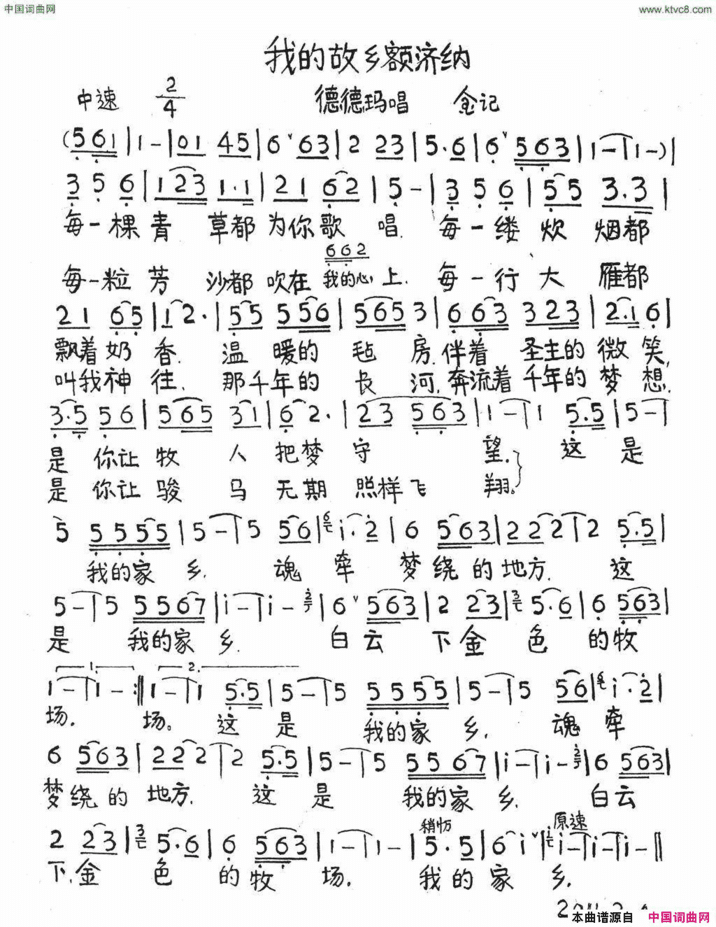 中国词曲网 www.ktvc8.com
我的故乡额济纳
中速 2/4 德德玛唱 金记
(5 61 | 1 - | 01 45 | 6 63 | 2 23 | 5·6 | 6 563 | 1 - | 1 - ) |
3 5 6 | 123 1·1 | 21 62 | 5 - | 3 5 6 | 55 3·3 |
每一棵青 草都为你歌 唱. 每一缕 炊 烟都
662
每一粒芳 沙都吹在 我的心上. 每一行大 雁都
21 65 | 12· | 55 556 | 5653 | 663 323 | 2·16 |
飘着奶香. 温暖的毡房,伴着 圣主的微笑,
叫我神往. 那千年的长河,奔流着千年的梦想,
3·5 56 | 565 31 | 62· | 23 563 | 1 - | 1 5·5 | 5 -
是你让牧 人把梦守 望. 这是
是你让骏 马无期照样飞 翔。
5 5555 | 5 - | 5 56 | i·2 | 6 563 | 222 | 2 5·5 |
我的家乡. 魂牵 梦绕的地方. 这
5 - | 5 5567 | i - | i - | 6 563 | 2 23 | 5·6 | 6 563 |
是 我的家乡. 白云 下金色的牧
1. 2.
1 - | 1 - :‖ 1 - | 1 5·5 | 5 - | 5 5555 | 5 - | 5 56 | i·2 |
场. 场。 这是 我的家乡, 魂牵
6 563 | 222 | 2 5·5 | 5 - | 5 5567 | i - | i - | 6 563 |
梦绕的 地方. 这是 我的家乡. 白云
稍忉 原速
2 23 | 5·6 | 6 563 | 1 - | 1 - | 5·5 | 6 i | i - | i - | i - ‖
下.金色的牧场. 我的家乡.
本曲谱源自 中国词曲网